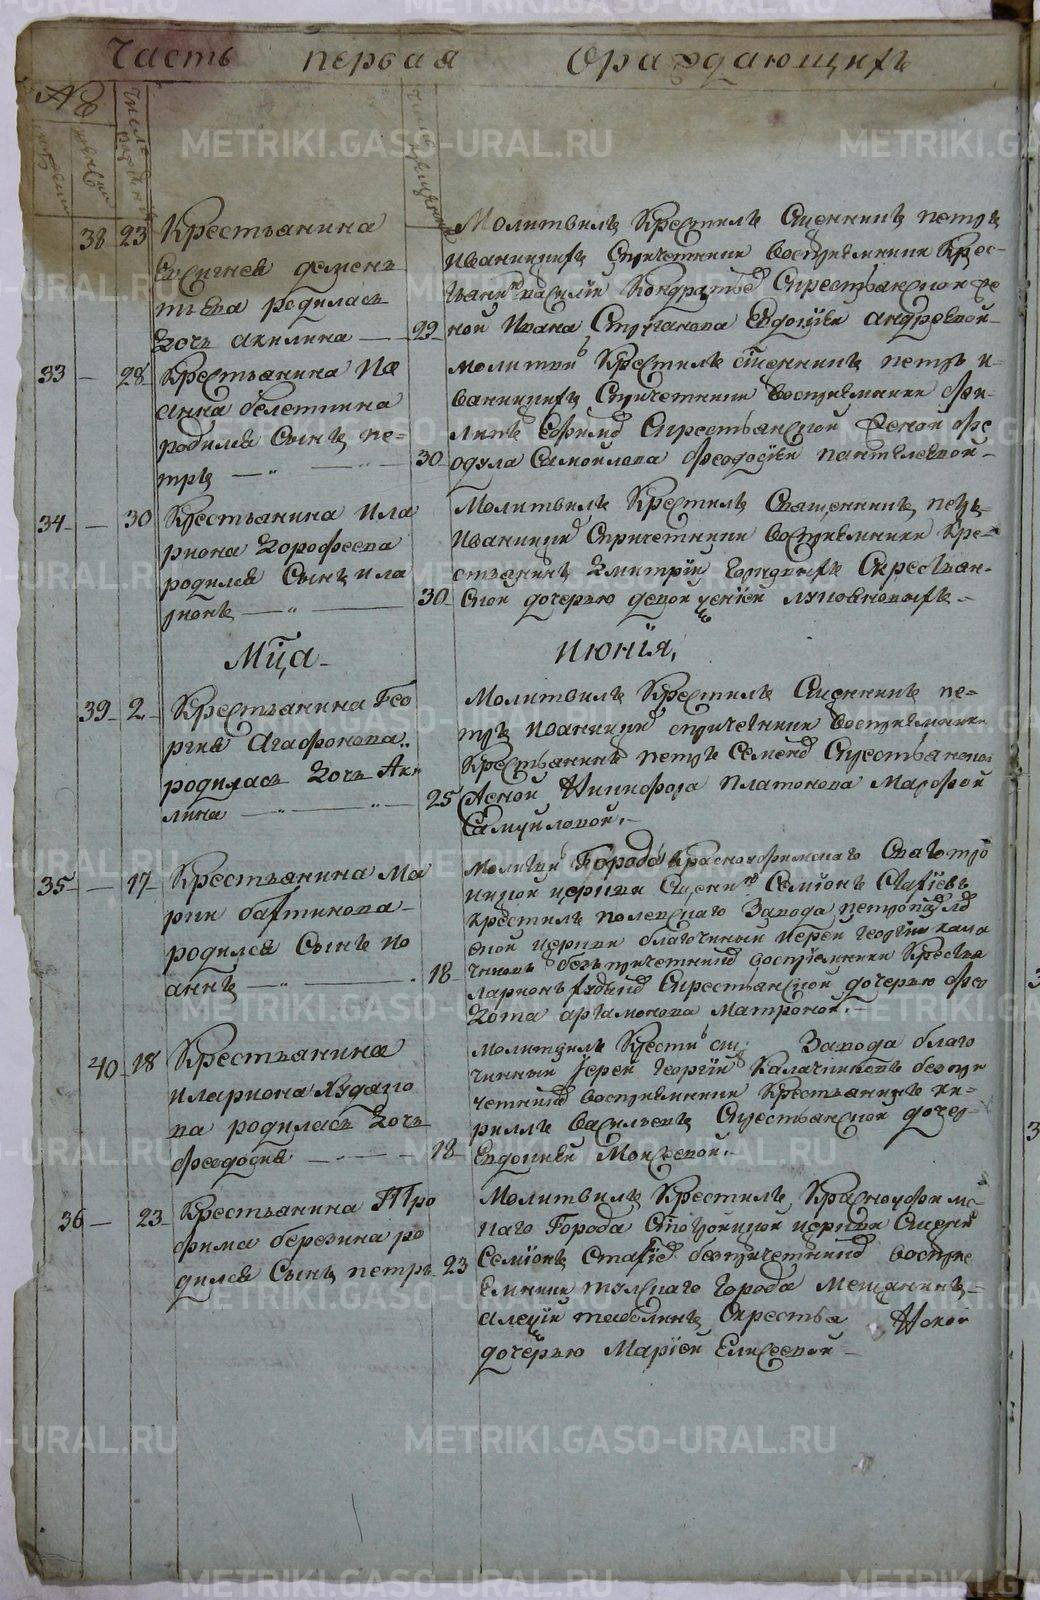 Часть первая ораждающихъ
№
38 23 Крестьянина
Евсигнея демень
тьева родилась
дочь акилина 29
Молитвилъ Крестилъ Сщенникъ петръ
иваницкихъ Спричетники Восприемники Крес-
тьянинъ василiй Кондратьев Скрестьянскои же
ной Ивана Стриганова Евдокiеи андреевой
33 — 28 Крестьянина Ио
анна белеткина
родился Сынъ пе=
тръ 30
молитвил Крестилъ сщенникъ петръ и-
ваницкихъ Спричетники Восприемники фи-
липъ ефимов Скрестьянской женой фе
одула Самойлова феодосiеи пантелеевой
34 — 30 Крестьянина ила
риона дорофеева
родился Сынъ ила
рионъ 30
Молитвилъ Крестилъ Священникъ петръ
иваницкий Спричетники восприемники кре-
стьянинъ дмитрiй Скрестьян-
скои дочерью девой
Мца июнiя,
39 2 Крестьянина Гео
ргия Агафонова
родилась дочь Аки
лина 25
Молитвилъ Крестилъ Сщенникъ пе=
тръ иваницкий спричетники Восприемники
Крестьянинъ петръ Семенов Скрестьянско
женой Никифора платонова Марфой
Самуиловой.
35 — 17 Крестьянина Ма
рки бактикова
родился Сынъ ио
аннъ 18
Молитвил Города Красноуфимскаго Свято тро
ицкой церкви Сщенникъ Семiонъ Стафiевъ
крестилъ полевскаго Завода петропавлов
ской церкви благочинный iерей георгiй кала
чниковъ безъ причетников восприемники Кресть
ларионъ Скрестьянской дочерью фео
дота артамонова Матроной.
40 18 Крестьянина
илариона Худяко
ва родилась дочь
феодосия 18
молитвилъ Крестил Завода благо
чинный iерей георгiй Калачниковъ безпри
четников восприемники Крестьянинъ ки-
риллъ Васильевъ Скрестьянской дочер
Евдокией Моисеевой.
36 — 23 Крестьянина Тро
фима березина ро
дился Сынъ петръ 23
Молитвилъ Крестилъ Красноуфимс-
каго Города Стотроицкой церкви Сщенн
Семiонъ Стафiев безпричетников воспри
емники тулскаго города мещанинъ
алексiй Скрестья Нской
дочерью Марiей Елисеевой
METRIKI.GASO-URAL.RU